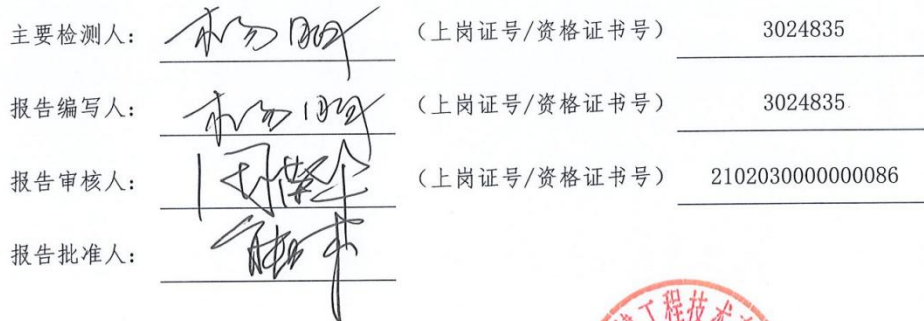 主要检测人： 杨 （上岗证号/资格证书号） 3024835
报告编写人： 杨 （上岗证号/资格证书号） 3024835
报告审核人： （上岗证号/资格证书号） 2102030000000086
报告批准人：
工程技术